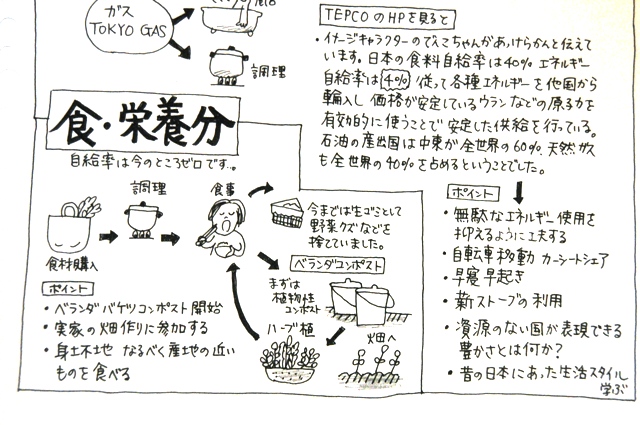 ガス
TOKYO GAS
調理
TEPCOのHPを見ると
・イメージキャラクターのでんこちゃんがあっけらかんと伝えて
います。日本の食料自給率は40% エネルギー
自給率は4% 従って各種エネルギーを他国から
輸入し 価格が安定しているウランなどの原子力を
有効的に使うことで 安定した供給を行っている。
石油の産出国は中東が全世界の60%、天然ガス
も全世界の40%を占めるということでした。
食・栄養分
自給率は今のところゼロです…。
調理
食事
食材購入
今までは生ゴミとして
野菜クズなどを
捨てていました。
ベランダコンポスト
まずは
植物性
コンポスト
ハーブ植
畑へ
ポイント
・ベランダバケツコンポスト開始
・実家の畑作りに参加する
・身土不二 なるべく産地の近い
ものを食べる
ポイント
・無駄なエネルギー使用を
抑えるように工夫する
・自転車移動 カーシートシェア
・早寝早起き
・薪ストーブの利用
・資源のない国が表現できる
豊かさとは何か?
・昔の日本にあった生活スタイル
学ぶ